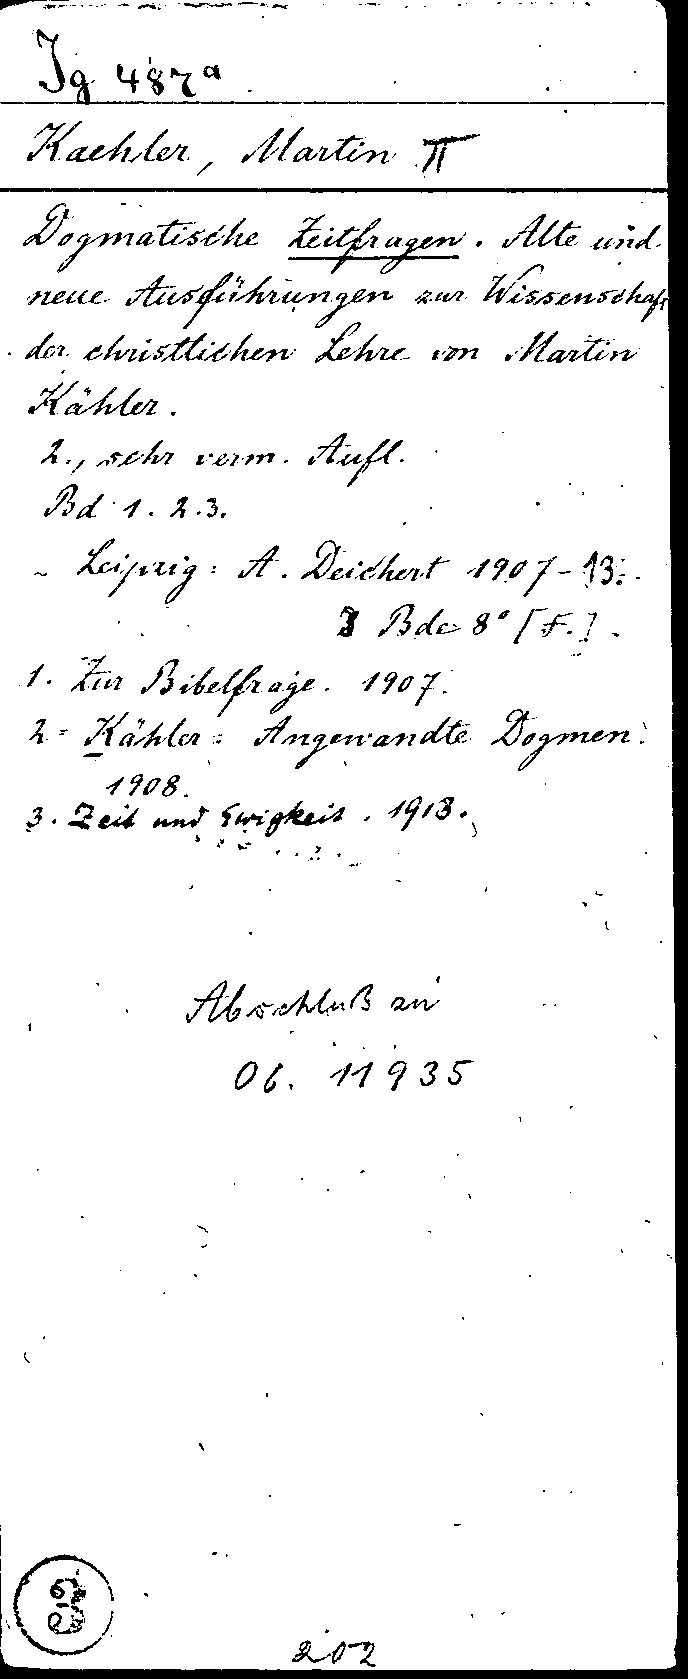 Ig 487a
Kaehler, Martin II
Dogmatische Zeitfragen. Alte und
neue Ausführungen zur Wissenschaft
der christlichen Lehre von Martin
Kähler.
2., sehr verm. Aufl.
Bd 1. 2. 3.
- Leipzig: A. Deichert 1907-13.
3 Bde 8° [F.].
1. Zur Bibelfrage. 1907.
2 = Kähler: Angewandte Dogmen.
1908.
3. Zeit und Ewigkeit. 1913.
Abschluß zu
06. 11935
3
202